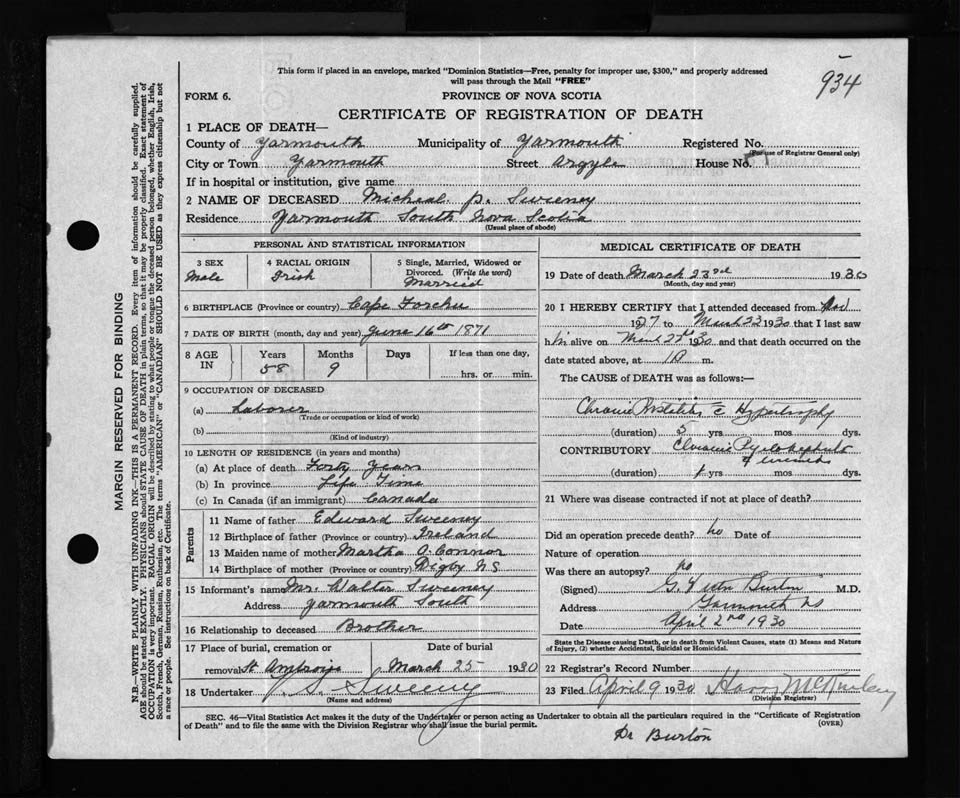 934
This form if placed in an envelope, marked "Dominion Statistics—Free, penalty for improper use, $300," and properly addressed
will pass through the Mail "FREE"
FORM 6.
PROVINCE OF NOVA SCOTIA
CERTIFICATE OF REGISTRATION OF DEATH
1 PLACE OF DEATH—
County of Yarmouth Municipality of Yarmouth Registered No.
(For use of Registrar General only)
City or Town Yarmouth Street Argyle House No.
If in hospital or institution, give name
2 NAME OF DECEASED Micheal P. Sweeney
Residence Yarmouth South Nova Scotia
(Usual place of abode)
PERSONAL AND STATISTICAL INFORMATION
3 SEX 4 RACIAL ORIGIN 5 Single, Married, Widowed or
Divorced. (Write the word)
Male Irish Married
6 BIRTHPLACE (Province or country) Cape Forchu
7 DATE OF BIRTH (month, day and year) June 16th 1871
8 AGE IN Years Months Days If less than one day,
58 9 hrs. or min.
9 OCCUPATION OF DECEASED
(a) Laborer
(Trade or occupation or kind of work)
(b)
(Kind of industry)
10 LENGTH OF RESIDENCE (in years and months)
(a) At place of death Forty Years
(b) In province Life Time
(c) In Canada (if an immigrant) Canada
Parents
11 Name of father Edward Sweeney
12 Birthplace of father (Province or country) Ireland
13 Maiden name of mother Martha O. Connor
14 Birthplace of mother (Province or country) Digby NS
15 Informant's name Mr. Walter Sweeney
Address Yarmouth South
16 Relationship to deceased Brother
17 Place of burial, cremation or Date of burial
removal St Ambrois March 25 1930
18 Undertaker J. S. Sweeny
(Name and address)
MEDICAL CERTIFICATE OF DEATH
19 Date of death March 23rd 1930
(Month, day and year)
20 I HEREBY CERTIFY that I attended deceased from Nov
1927 to March 23 1930 that I last saw
him alive on March 1930 and that death occurred on the
date stated above, at m.
The CAUSE OF DEATH was as follows:—
Chronic Prostatitis c Hypertrophy
(duration) 5 yrs. mos dys.
CONTRIBUTORY Chronic
(duration) yrs. mos dys.
21 Where was disease contracted if not at place of death?
Did an operation precede death? no Date of
Nature of operation
Was there an autopsy? no
(Signed) G. Burton M.D.
Address Yarmouth NS
Date April 2nd 1930
State the Disease causing Death, or in death from Violent Causes, state (1) Means and Nature
of Injury, (2) whether Accidental, Suicidal or Homicidal.
22 Registrar's Record Number
23 Filed April 9 1930 Harry McKinley
(Division Registrar)
SEC. 46—Vital Statistics Act makes it the duty of the Undertaker or person acting as Undertaker to obtain all the particulars required in the "Certificate of Registration
of Death" and to file the same with the Division Registrar who shall issue the burial permit.
(OVER)
Dr Burton
MARGIN RESERVED FOR BINDING
N.B.—WRITE PLAINLY WITH UNFADING INK—THIS IS A PERMANENT RECORD. Every item of information should be carefully supplied.
AGE should be stated EXACTLY. PHYSICIANS should STATE CAUSE OF DEATH in plain terms, so that it may be properly classified. Exact statement of
OCCUPATION is very important. RACIAL ORIGIN will be described by stating to what people or tongue the deceased person belonged, whether English, Irish,
Scotch, French, German, Russian, Ruthenian, etc. The terms "AMERICAN" or "CANADIAN" SHOULD NOT BE USED as they express citizenship but not
a race or people. See instructions on back of Certificate.